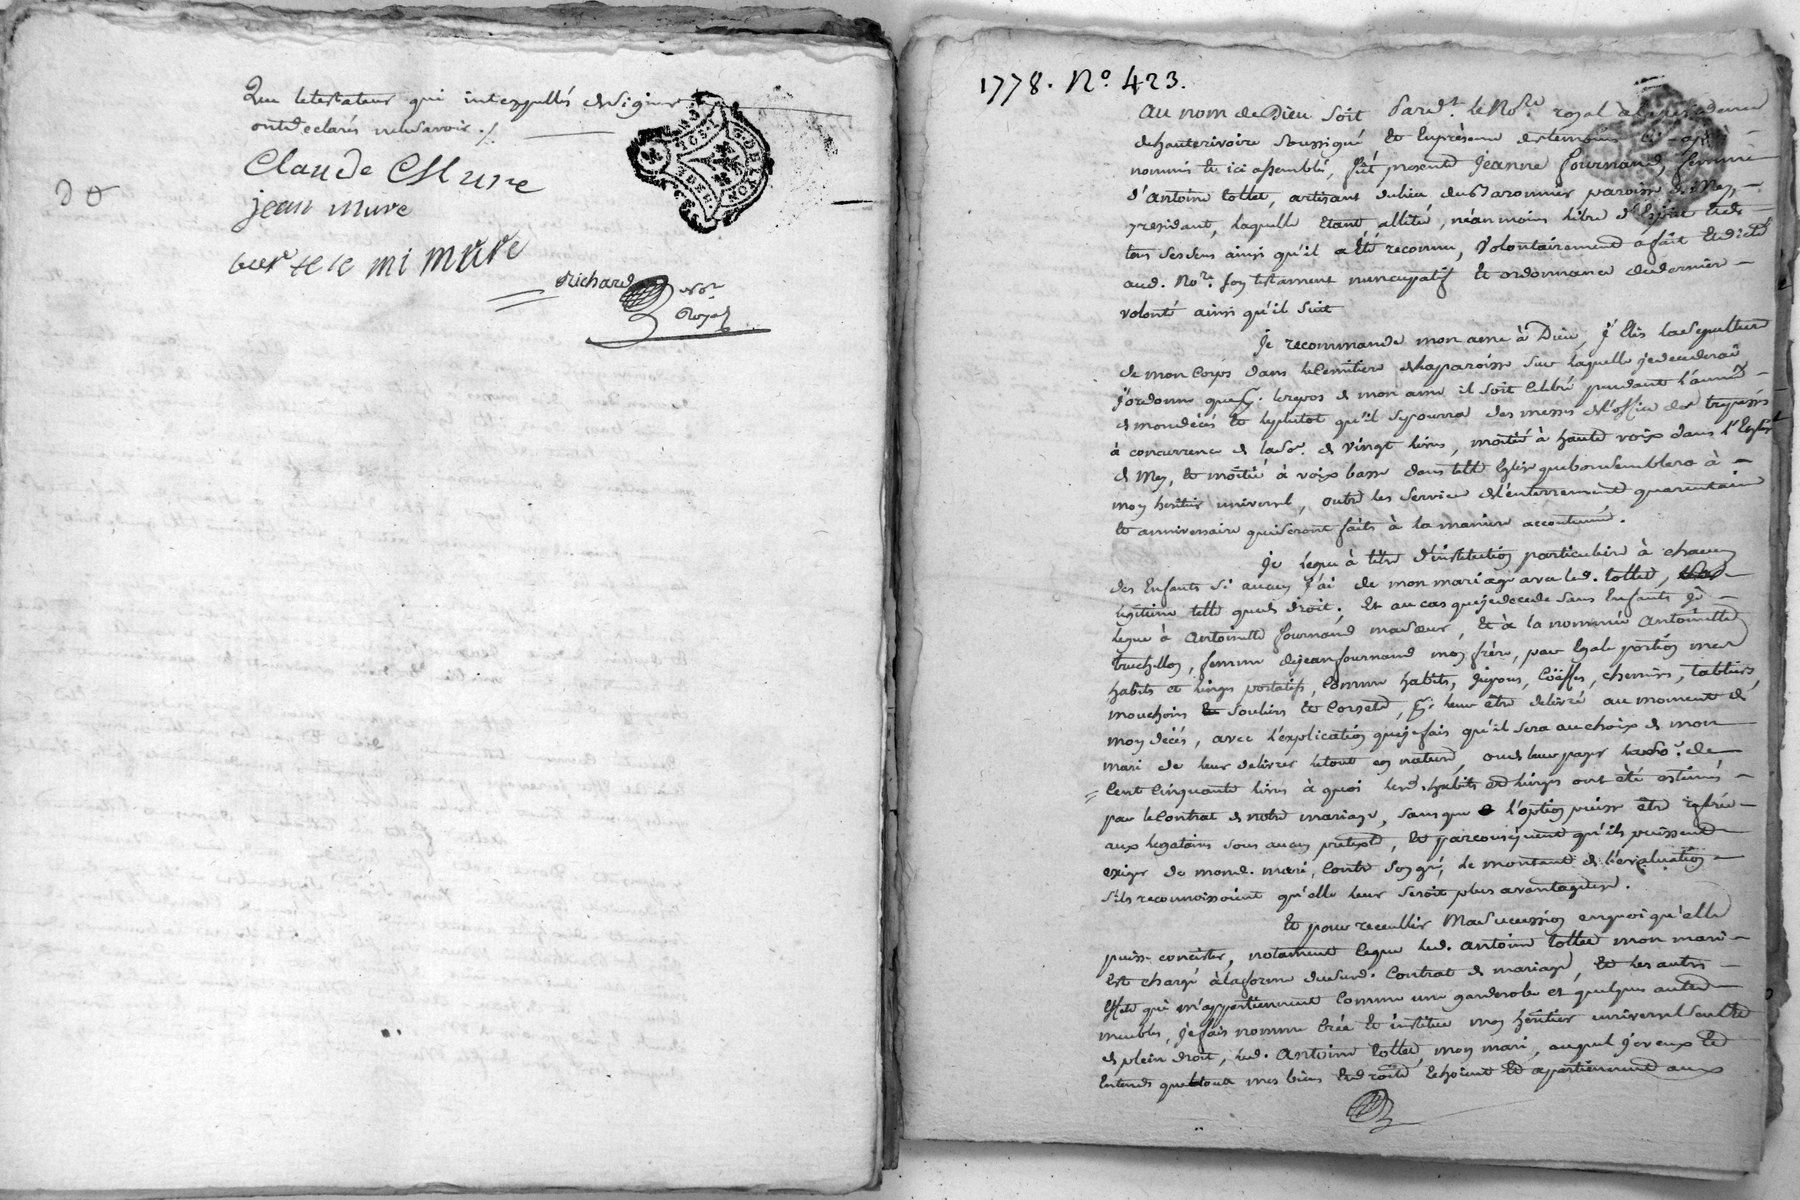 Que letestateur qui interppellés designer
ontdeclarés nelesavoir ./.
Claude Mure
jean mure
mi mure
Richard
Nore
Royal
GEN. DE LYON
1778. No. 423.
Au nom de Dieu soit Pardt. le Nore. royal à la residence
dehauterivoire soussigné et Enpresence destemoins ci-après
nommés et ici assemblés, fut present Jeanne fournand, femme
d'Antoine tollet, artisant dulieu desbaronnier paroisse de Mey
y residant, laquelle etant allitée, néanmoins libre d'Esprit et de
tous sessens ainsi qu'il a Eté reconnu, Volontairement a fait et dicté
aud. Nore. son testament nuncupatif et ordonnance dedernier
volonté ainsi qu'il suit
Je recommande mon ame à Dieu, j'Elis la sepulture
de mon Corps dans le Cemitiere de la paroisse sur laquelle je decederai
J'ordonne que pr. le repos de mon ame il soit celebré pendant l'année
de mon décés et le plutot qu'il se pourra des messes de l'office des trepassés
à concurrence de la so. de vingt livres, moitié à haute voix dans l'Eglise
de Mey, et moitié à voix basse dans telle Eglise que bon semblera à
mon heritier universel, outre les services de l'enterrement quarantaine
et anniversaire qui seront faits à la maniere accoutumé.
Je legue à titre d'institution particuliere à chacun
des Enfants si aucun j'ai de mon mariage avec led. tollet,
legitime telle que de droit. Et au cas que je decede sans Enfants je
legue à Antoinette fournand ma soeur, et à la nommée Antoinette
truchellon, femme de jean fournand mon frère, par Egale portion mes
habits et linges portatifs, comme habits, jupons, Coëffes, chemises, tabliers,
mouchoirs souliers et Corsets, pr. leur être delivré au moment de
mon décés, avec l'explication que je fais qu'il sera au choix de mon
mari de leur delivrer le tout en nature, ou de leur payer la so. de
Cent Cinquante livres à quoi lesd. habits et linges ont été estimés
par le Contrat de notre mariage, sans que l'option puisse être referée
aux legataires sous aucun pretexte, et par consequent qu'ils puissent
exiger de mond. mari, Contre son gré, le montant de l'evaluation
s'ils reconnoissoient qu'elle leur seroit plus avantageuse.
Et pour recuellir Ma Succession en quoi qu'elle
puisse concister, notament ce que led. Antoine tollet mon mari
Est chargé à la forme dususd. Contrat de mariage, et les autres
Effets qui m'appartiennent Comme une garderobe et quelques autres
meubles, je fais nomme crée et institue mon heritier universel seul et
de plein droit, led. Antoine tollet, mon mari, auquel je veux et
Entends que tous mes biens et droits Echoient et apartiennent aux